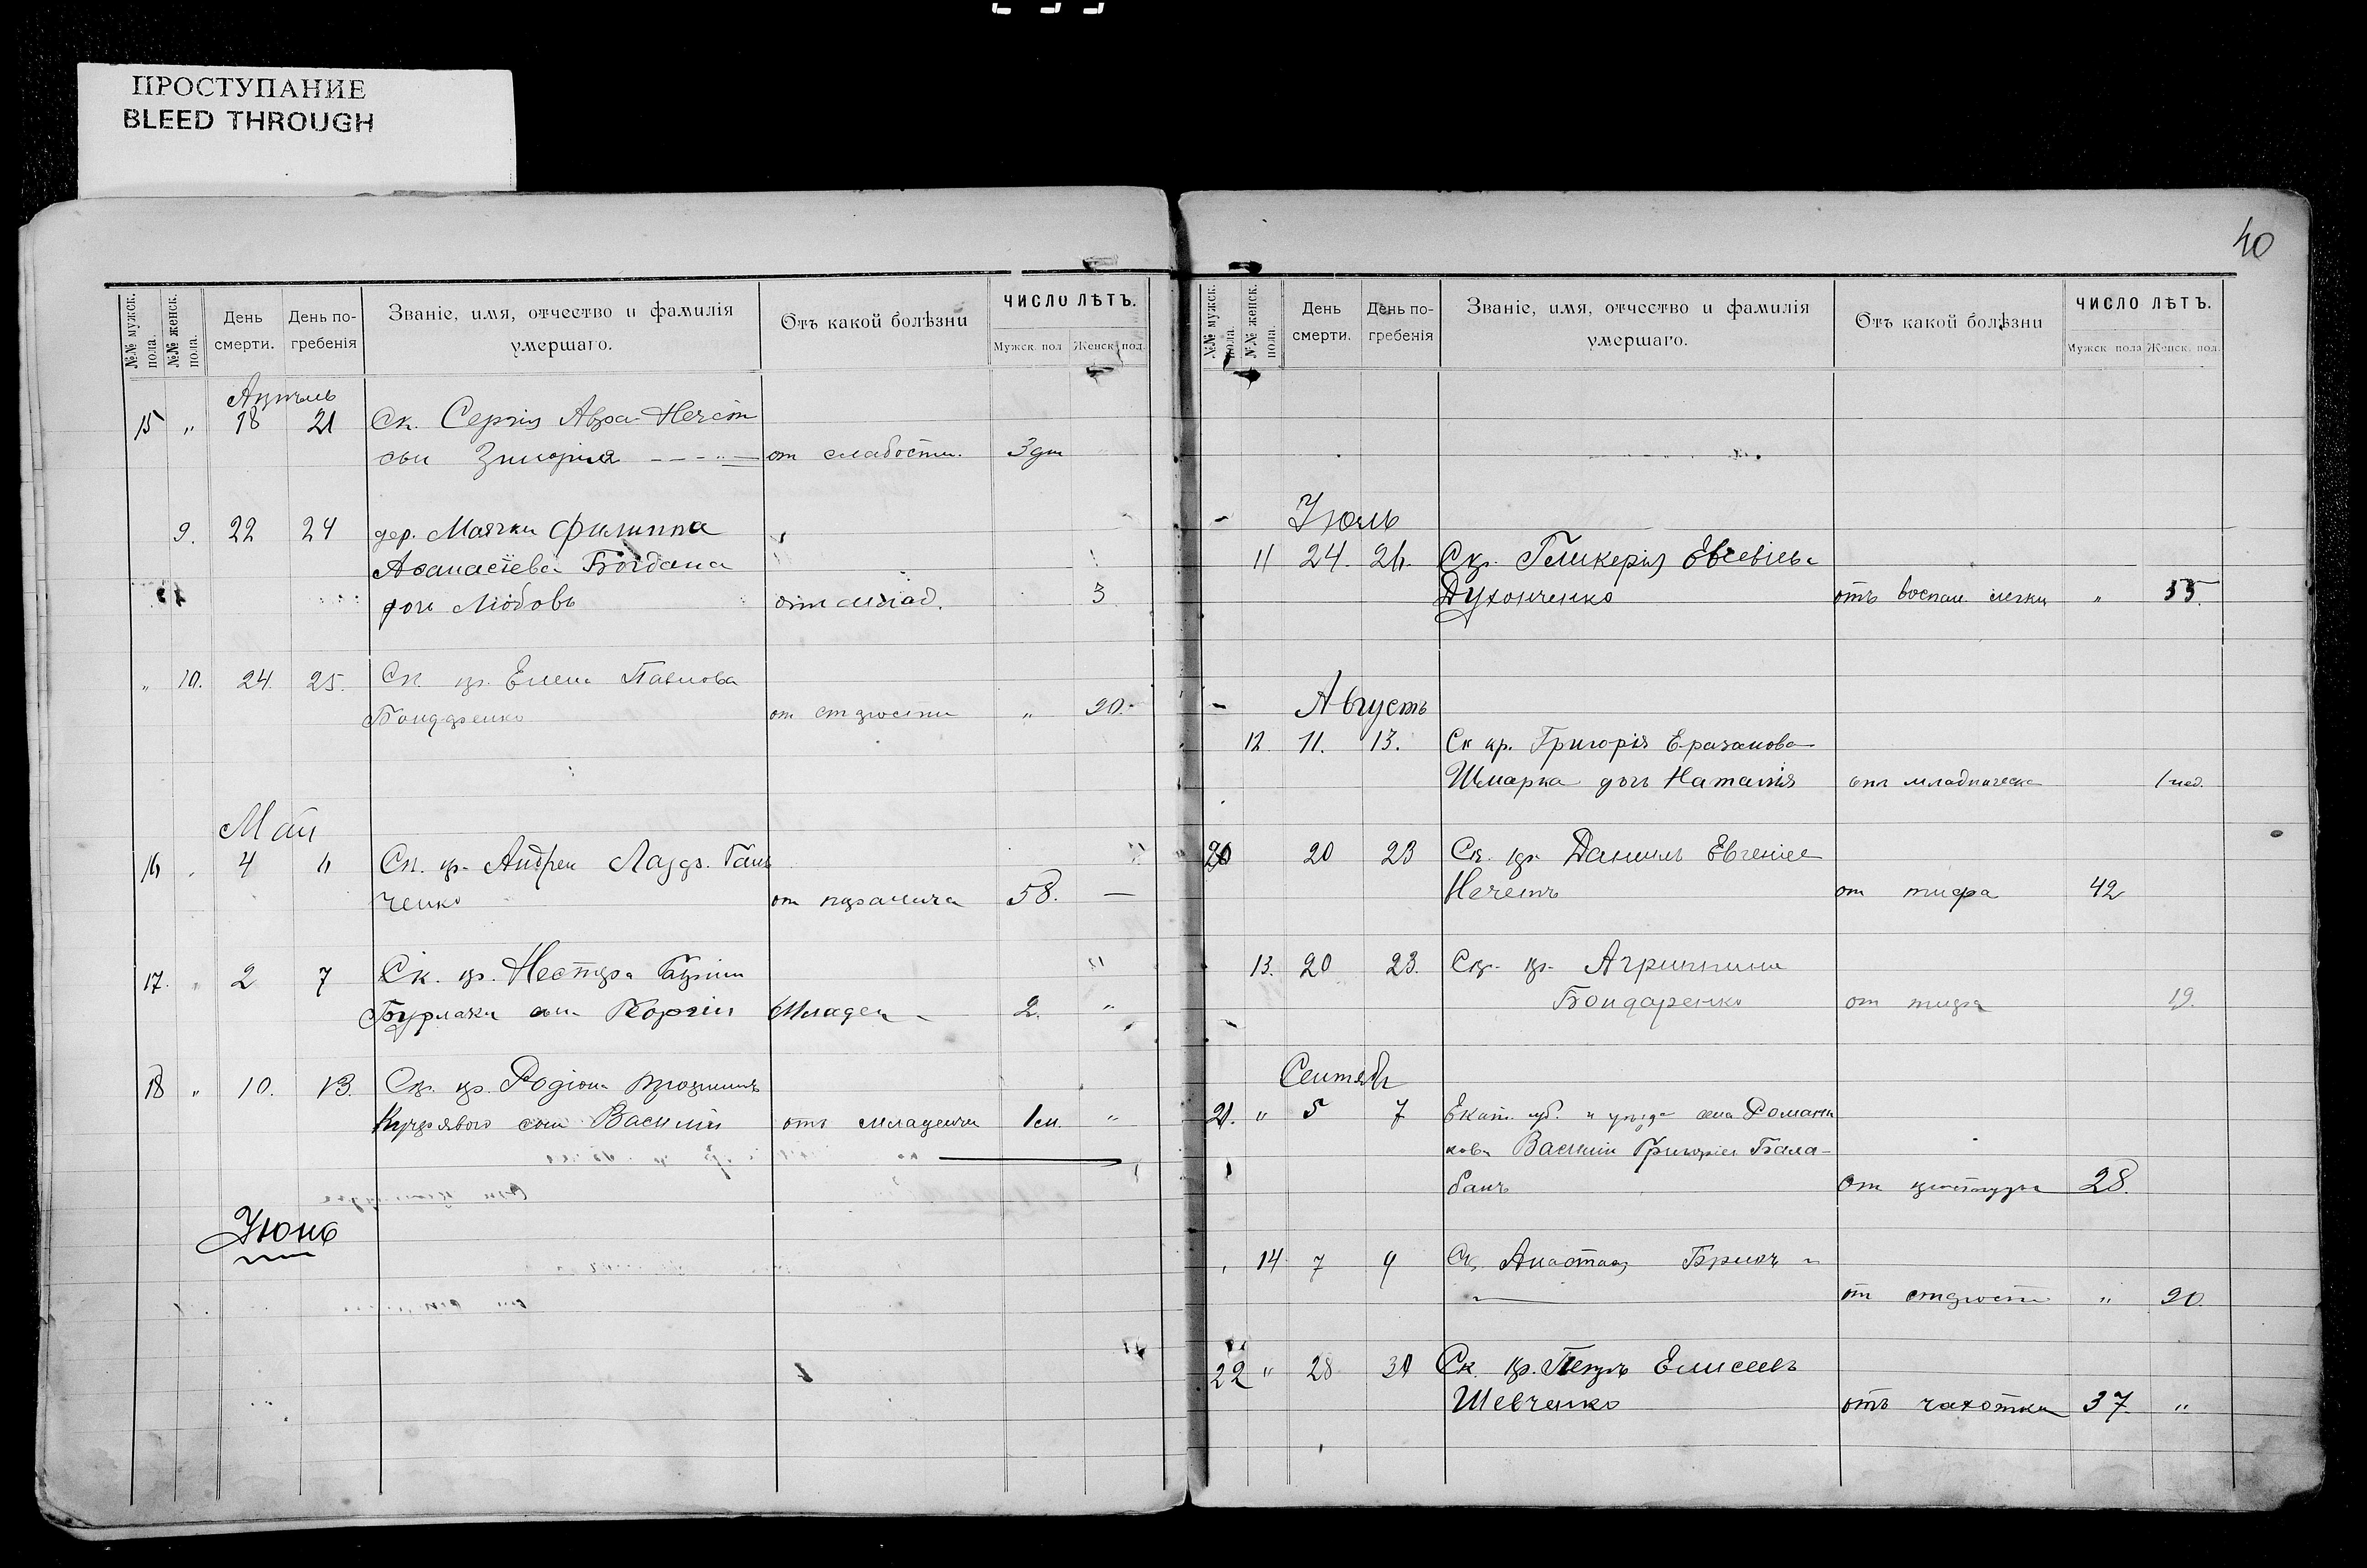 ПРОСТУПАНИЕ
BLEED THROUGH
40
№№ мужск. пола.
№№ женск. пола.
День смерти.
День по-гребенія
Званіе, имя, отчество и фамилія умершаго.
Отъ какой болѣзни
ЧИСЛО ЛѢТЪ.
Мужск. пол
Женск. пол.
Апрѣль
15 " 18 21 Ск. Сергія
сын от слабости. 3 дн
9. 22 24 дер. Маячки Филиппа
Аѳанасіева Богдана
дочь Любовь от млад. 3
" 10. 24. 25. Ск. кр. Елена Павлова
Бондаренко от старости " 90.
Май
16 4 Ск. кр. Андрей
ченко от паралича 58. —
17. " 2 7 Ск. кр. Нестора
Бурлаки сын Георгій Младен 2. "
18 " 10. 13. Ск. кр. Родіона
Кучерявого сын Василій отъ младенч 1 м. "
Іюнь
№№ мужск. пола.
№№ женск. пола.
День смерти.
День по-гребенія
Званіе, имя, отчество и фамилія умершаго.
Отъ какой болѣзни
ЧИСЛО ЛѢТЪ.
Мужск. пола
Женск. пол.
Іюль
11 24. 26. Гликерія
Духонченко отъ воспал. легких " 55.
Августъ
12. 11. 13. Ск кр. Григорія
Шмарка дочь Наталія от младенческ 1 нед.
20 20 23 Ск. кр. Даніилъ Евгеніев
от тифа 42
13. 20 23. Ск. кр. Агриппина
Бондаренко от тифа 19.
Сентябр
21. " 5 7 Екат. губ. и уѣзда села Романкова
Василій Григоріев Бала-
банъ От 28.
14 7 9 Ск. Анастасія
от старости " 90.
22 " 28 30 Ск. кр. Петръ Елисеевъ
Шевченко отъ чахотки 37. "